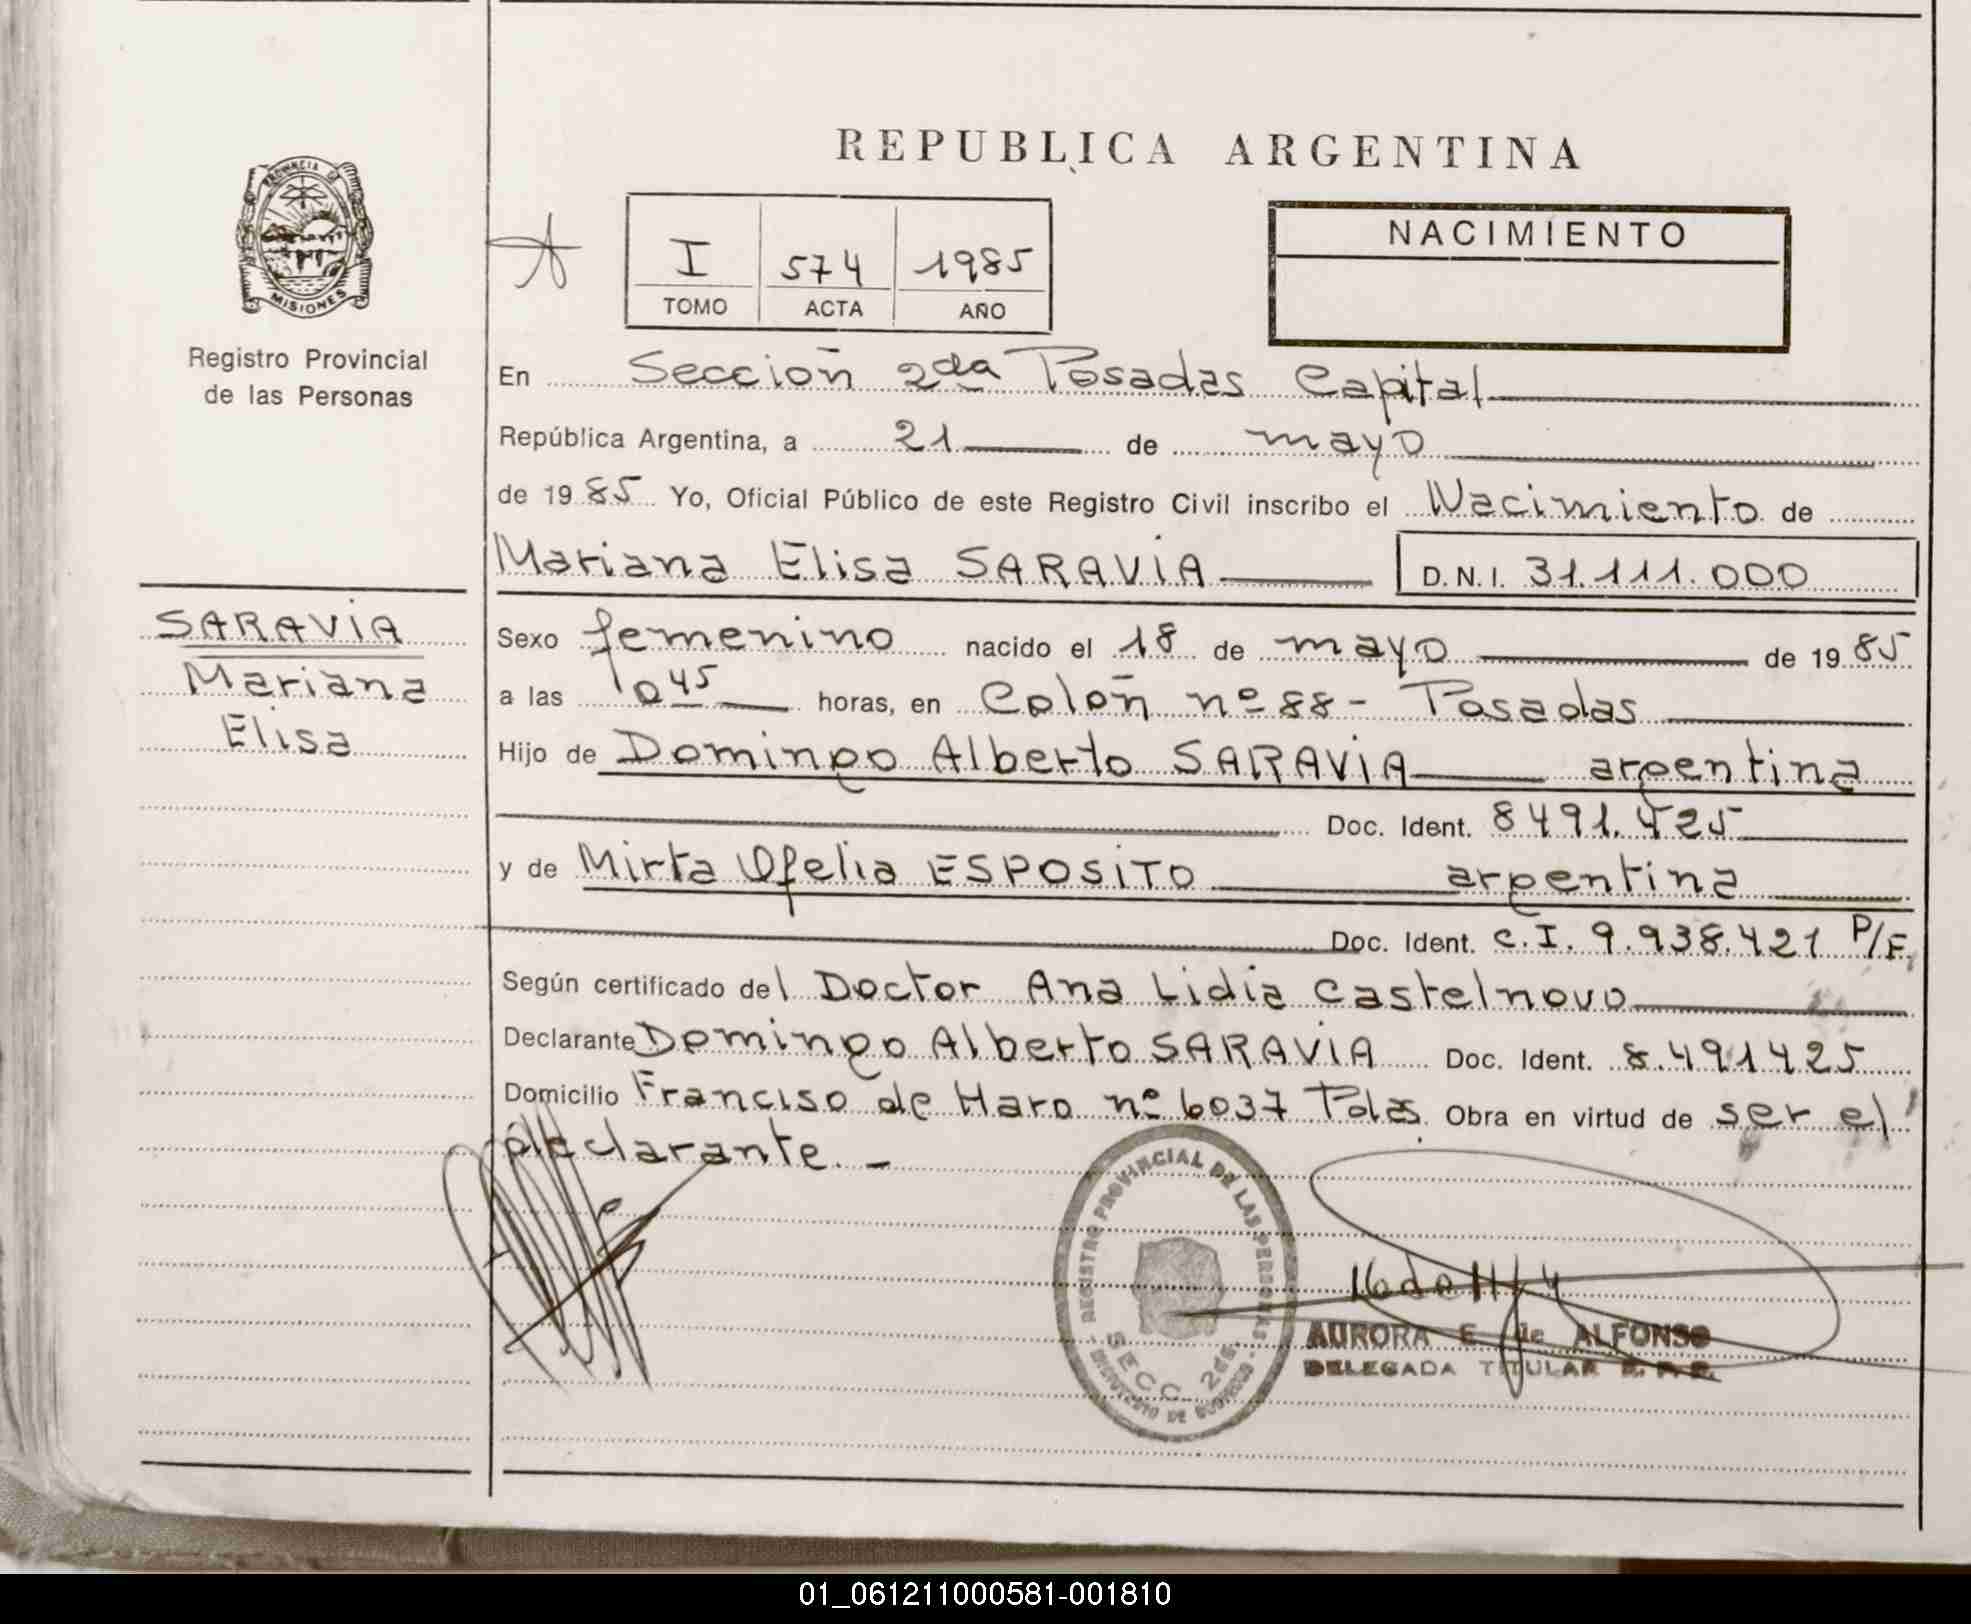 REPUBLICA ARGENTINA
PROVINCIA DE
MISIONES
Registro Provincial
de las Personas
I 574 1985
TOMO ACTA AÑO
NACIMIENTO
En Sección 2da Posadas Capital
República Argentina, a 21 de mayo
de 1985 Yo, Oficial Público de este Registro Civil inscribo el Nacimiento de
Mariana Elisa SARAVIA D.N.I. 31.111.000
SARAVIA
Mariana
Elisa
Sexo femenino nacido el 18 de mayo de 1985
a las 10 45 horas, en Colón nº 88 - Posadas
Hijo de Domingo Alberto SARAVIA argentina
Doc. Ident. 8491.425
y de Mirta Ofelia ESPOSITO argentina
Doc. Ident. C.I. 9.938.421 P/F.
Según certificado del Doctor Ana Lidia Castelnovo
Declarante Domingo Alberto SARAVIA Doc. Ident. 8.491425
Domicilio Franciso de Haro nº 6037 Pdas. Obra en virtud de ser el
declarante. -
REGISTRO PROVINCIAL DE LAS PERSONAS
SECC. 2da.
AURORA E. de ALFONSO
DELEGADA TITULAR R. P. P.
01_061211000581-001810